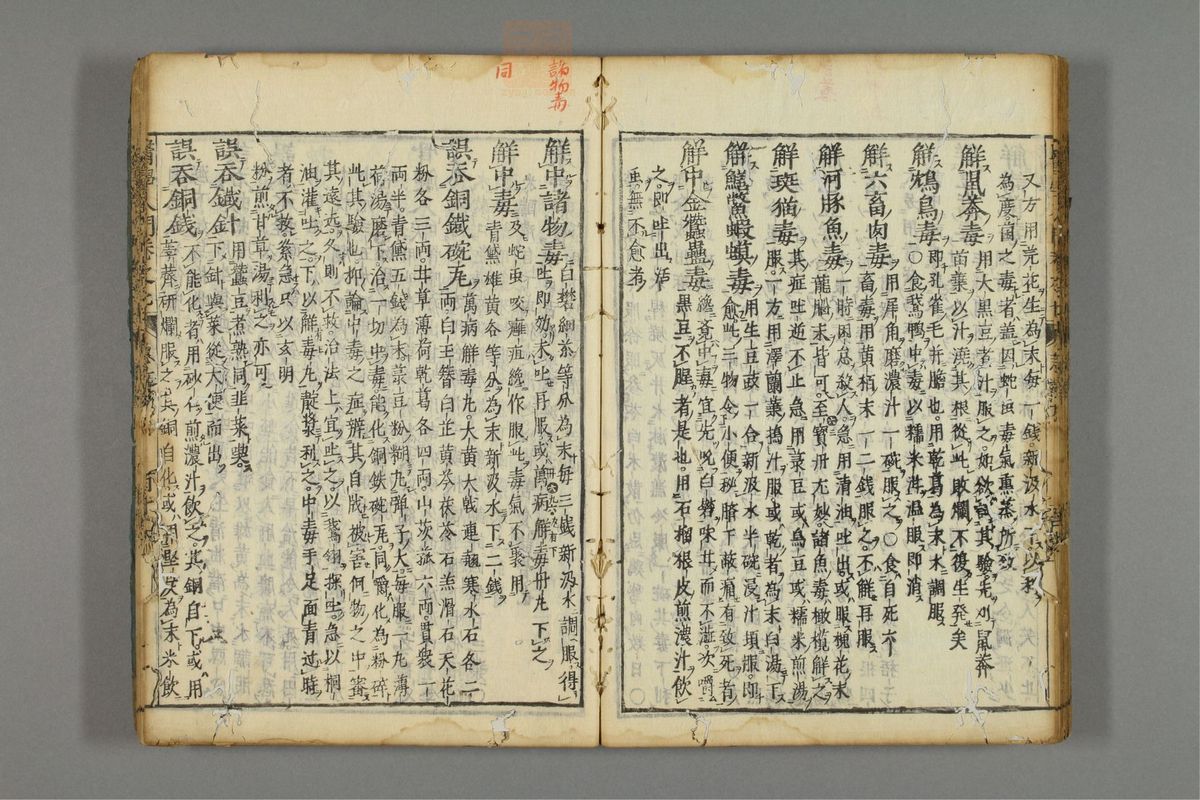 又方用芫花生為末每一錢新汲水
為麽菌之毒生者蓋因蛇虫毒氣熏蒸所致
解鼠莽毒 用大黒豆煮汁服之如欲試其驗先刈鼠莽
苗葉以汁澆其根從此敗爛不復生発矣
解鴆鳥毒 即孔雀毛并膽也用乾葛為末水調服
○食鵞鴨中毒以糯米泔温服即消
解六畜肉毒 用犀角磨濃汁一碗服之○食自死六
畜毒用黄栢末一二錢服之不觧再服
解河豚魚毒 一時困怠殺人急用清油吐出或服槐花末
龍脳末皆可至寳丹尤妙諸魚毒橄欖觧之
解斑猫毒 其症吐逆不止急用菉豆或烏豆或糯米煎湯
服一方用澤蘭葉搗汁服或乾者為末白湯下
解鱔鱉蝦蟇毒 用生豆豉一合新汲水半碗浸汁頓服即
愈此三物令小便秘臍下蔽痛有致死者
解中金蠶蠱毒 纔覚中毒宜先吮白礬味甘而不澁次嚼
黒豆不腥者是也用石榴根皮煎濃汁飲
之即吐出活
無不愈者
諸物毒
同
解中諸物毒 白礬細茶等分為末毎三錢新汲水調服得
吐即効未吐再服或萬病觧毒丹九下之
解中毒 及蛇虫咬癰疽纔作服此毒氣不裏用
青黛雄黄各等分為末新汲水下二錢
誤呑銅鐵碗瓦 萬病觧毒丸大黄大戟連翹寒水石各二
兩白玉簪白芷黄芩茯苓石羔滑石天花
粉各三兩甘草薄荷乾葛各四兩山茨菰六兩貫衆一
兩半青黛五錢為末菉豆粉糊丸彈子大毎服一丸薄
荷湯磨下治一切虫毒能化銅鉄碗瓦同嚼化為粉碎
此其驗也抑論中毒之症辨其自戕被害何物之中審
其遠近久則不救治法上宜吐之以鵞翎探吐急以桐
油灌吐之下以觧毒丸靛漿利之中毒手足面青过時
者不救急只以玄明
粉煎甘草湯利之亦可
誤呑鐵針 用蠶豆煮熟同韭菜喫
下針與菜從大便而出
誤呑銅錢 不能化者用砂仁煎濃汁飲之其銅自下或用
荸薺研爛服之其銅自化或堅炭為末米飲